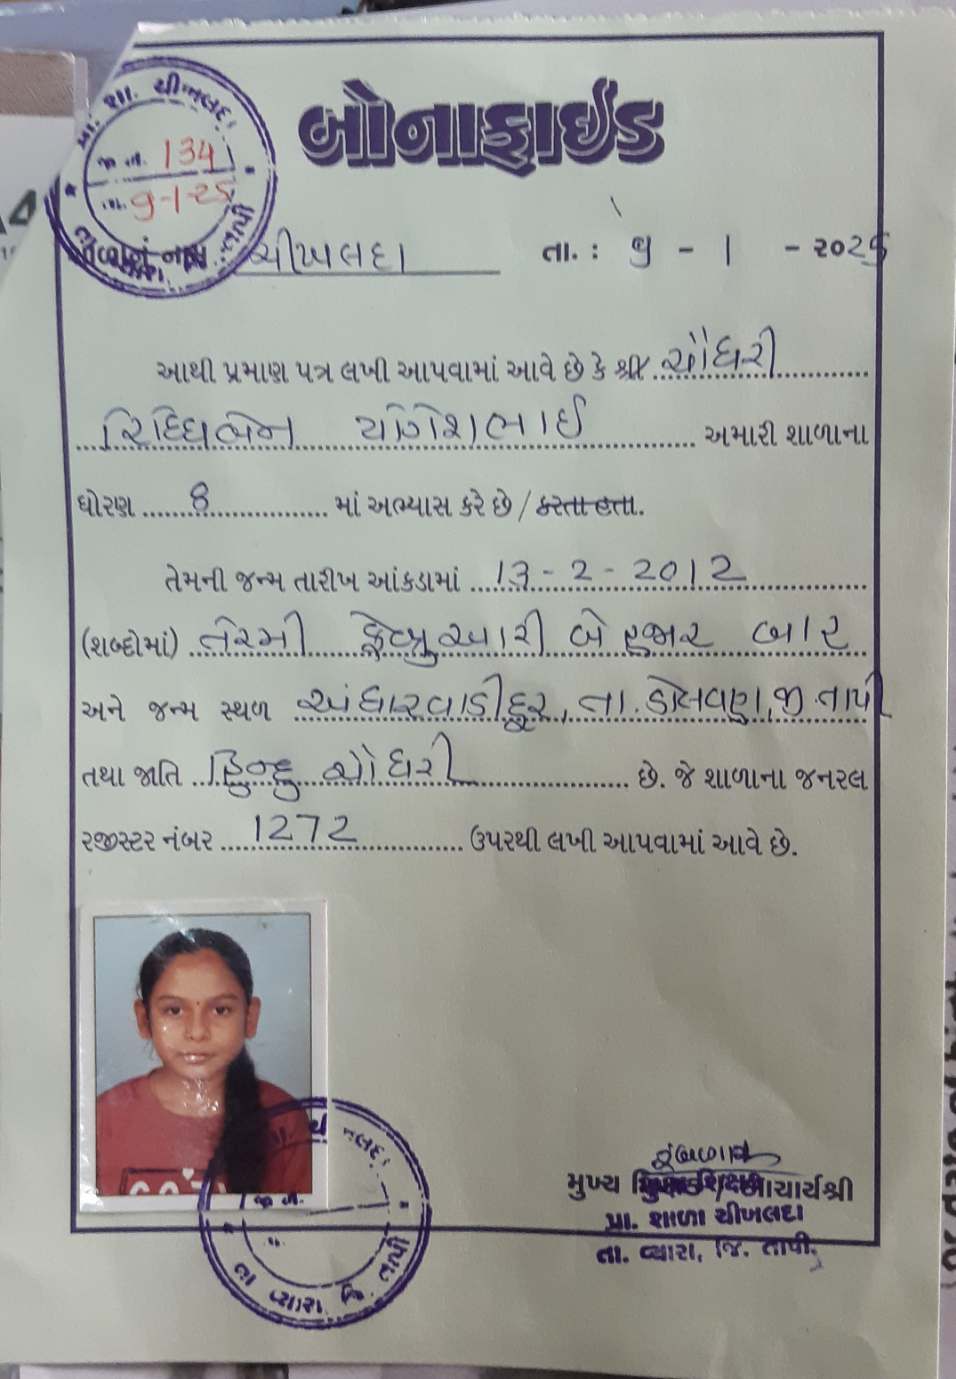 બોનાફાઈડ
પ્રા. શા. ચીખલદા
જા નં. 134
તા. 9-1-25
તા વ્યારા જિ. તાપી
ગામનું નામ ચીખલદા તા. : ૯ - 1 - ૨૦25
આથી પ્રમાણ પત્ર લખી આપવામાં આવે છે કે શ્રી ચૌધરી
રિધ્ધિબેન યોગેશભાઈ અમારી શાળાના
ધોરણ 8 માં અભ્યાસ કરે છે / કરતા હતા.
તેમની જન્મ તારીખ આંકડામાં 13 - 2 - 2012
(શબ્દોમાં) તેરમી ફેબ્રુઆરી બે હજાર બાર
અને જન્મ સ્થળ અંધારવાડીદૂર, તા. ડોલવણ, જી. તાપી
તથા જાતિ હિન્દુ ચૌધરી છે. જે શાળાના જનરલ
રજીસ્ટર નંબર 1272 ઉપરથી લખી આપવામાં આવે છે.
ચીખલદા
જા નં.
તા વ્યારા. જિ. તાપી
મુખ્ય શિક્ષક / આચાર્યશ્રી
પ્રા. શાળા ચીખલદા
તા. વ્યારા, જિ. તાપી.